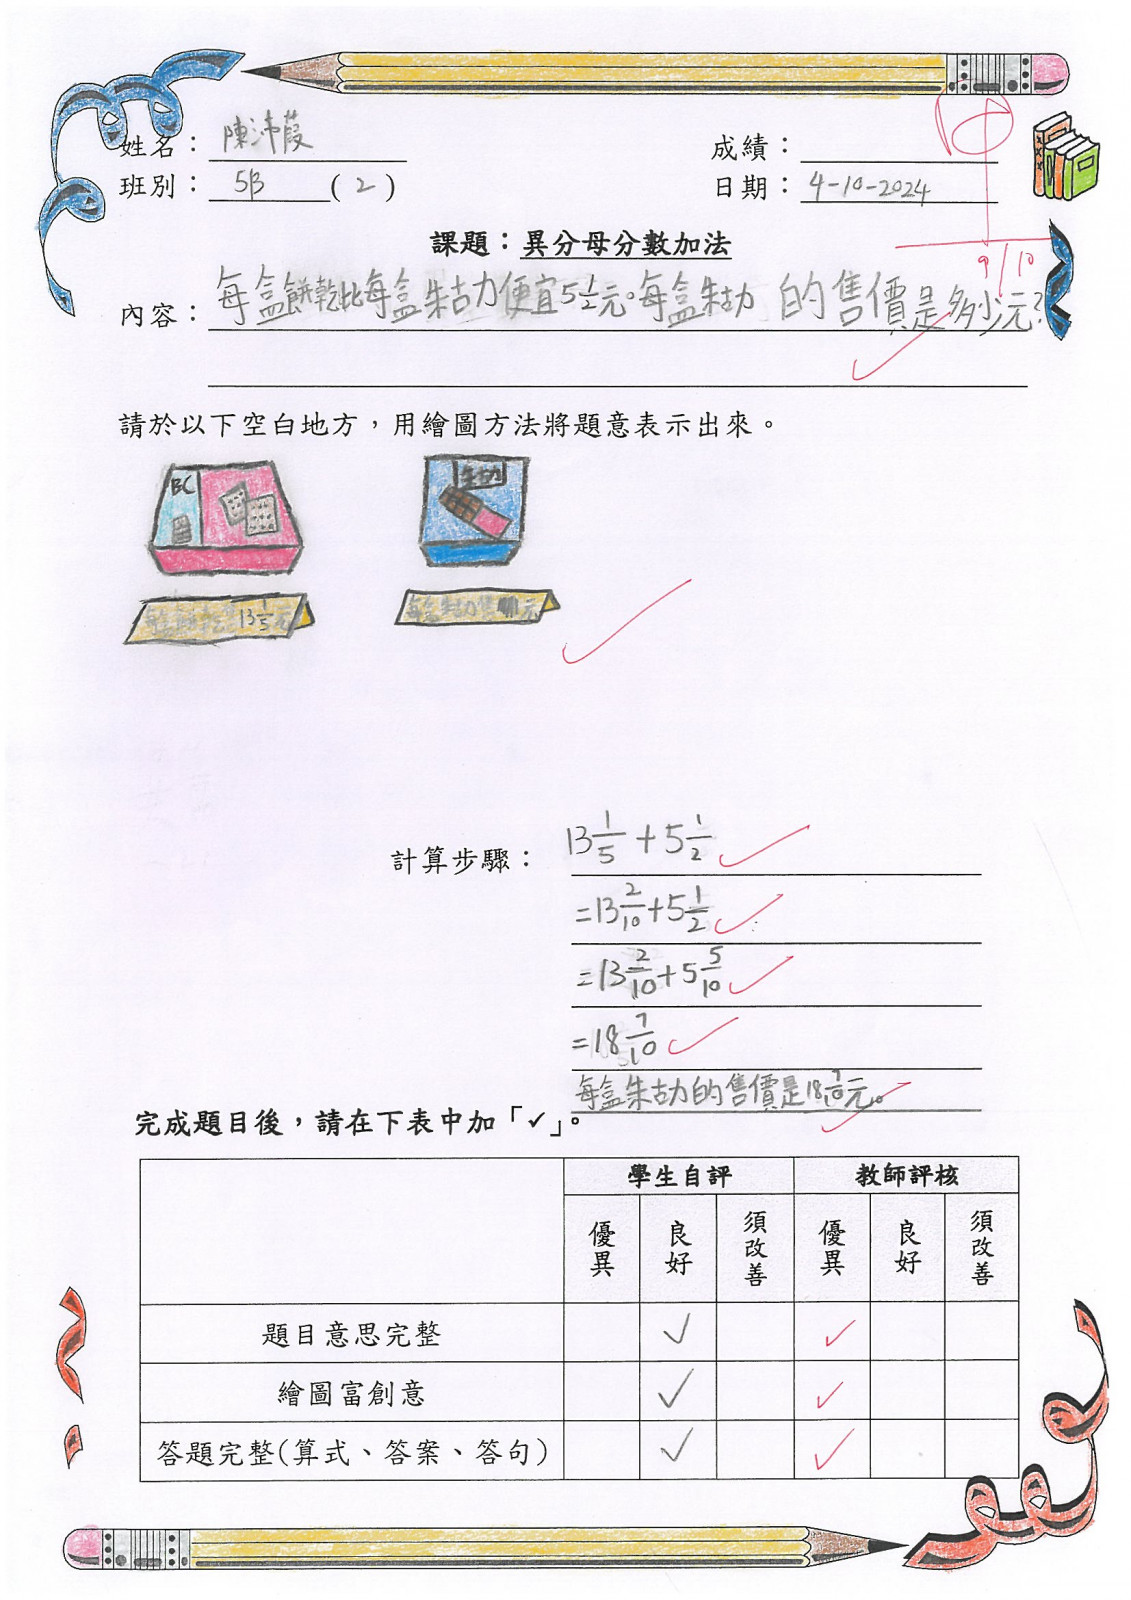 姓名：陳沛葭
成績：
班別：5B(2)
日期：4-10-2024
9/10
課題：異分母分數加法
內容：每盒餅乾比每盒朱古力便宜5 1/2元。每盒朱古力 的售價是多少元？
請於以下空白地方，用繪圖方法將題意表示出來。
BC
朱古力
每盒餅乾售13 1/5元
每盒朱古力售 元
計算步驟：
13 1/5 + 5 1/2
=13 2/10 + 5 1/2
=13 2/10 + 5 5/10
=18 7/10
每盒朱古力的售價是18 7/10元。
完成題目後，請在下表中加「✓」。
學生自評 教師評核
優異 良好 須改善 優異 良好 須改善
題目意思完整 ✓ ✓
繪圖富創意 ✓ ✓
答題完整(算式、答案、答句) ✓ ✓